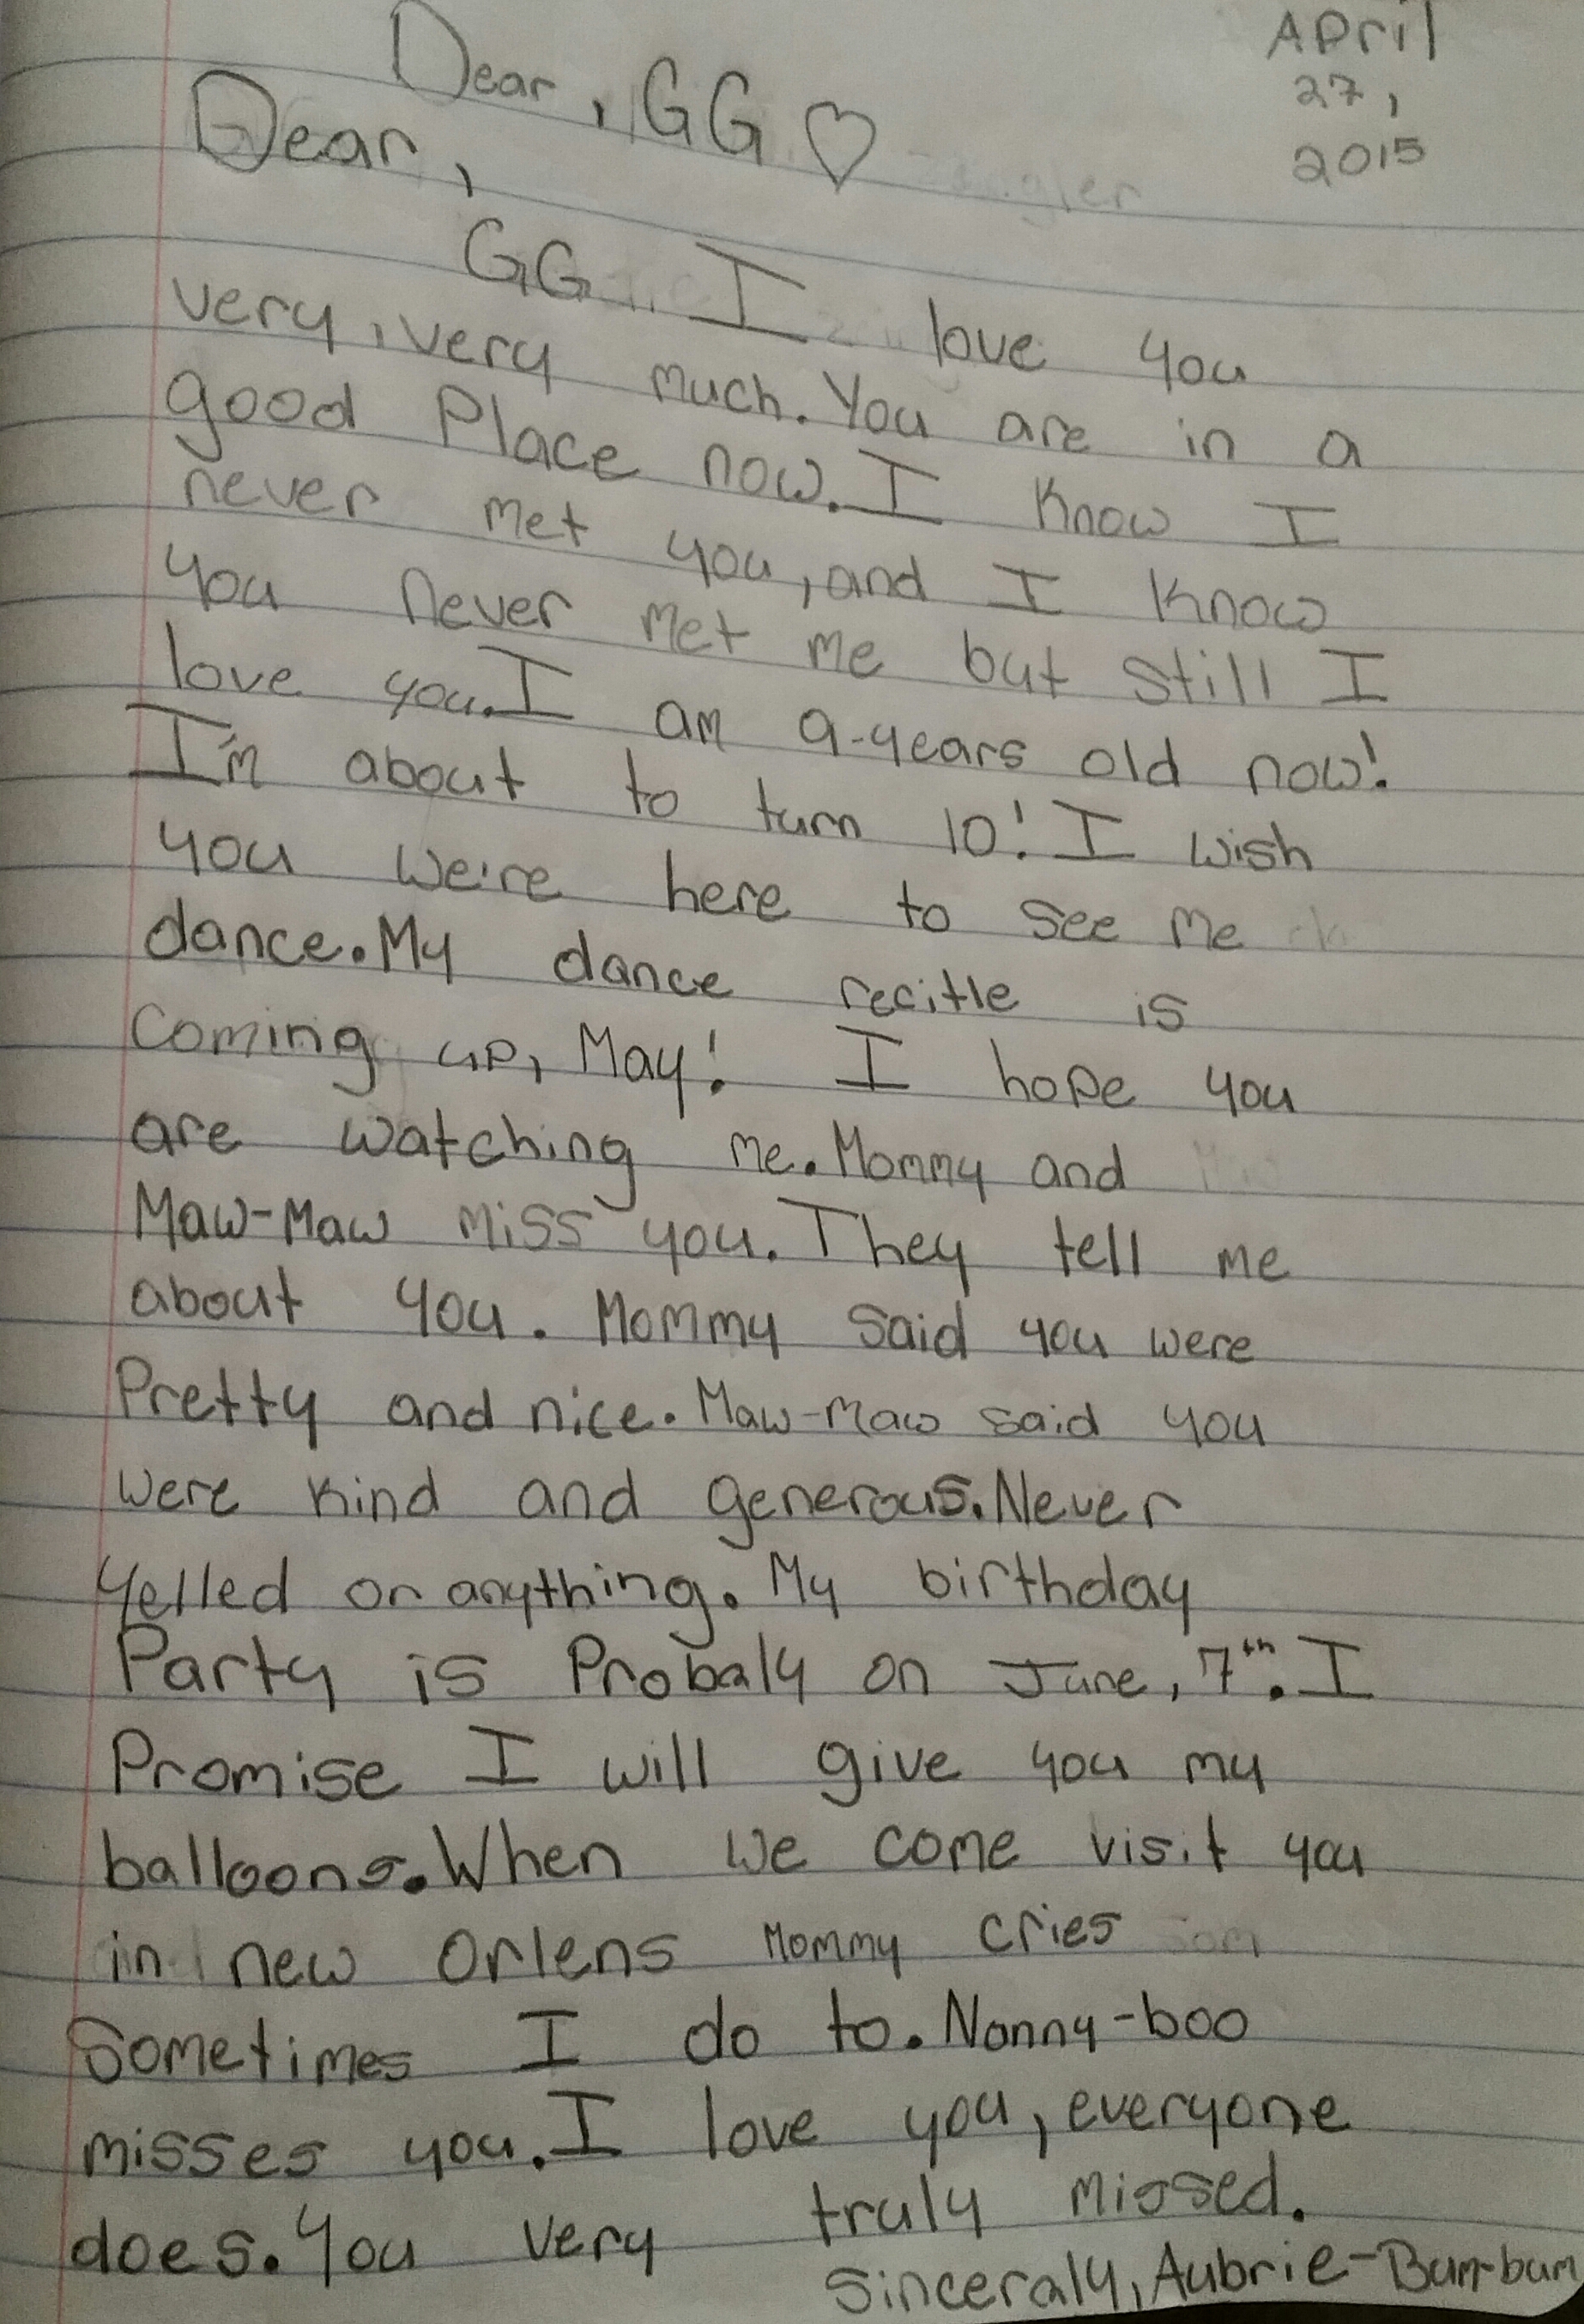 April
27,
2015
Dear, GG ♡
Dear,
GG I love you
very, very much. You are in a
good Place now. I know I
never met you, and I know
you never met me but still I
love you. I am 9-years old now!
I'm about to turn 10! I wish
you we're here to see me
dance. My dance recitle is
coming up, May! I hope you
are watching me. Mommy and
Maw-Maw miss you. They tell me
about you. Mommy said you were
Pretty and nice. Maw-maw said you
were kind and generous. Never
yelled or anything. My birthday
Party is Probaly on June, 7th. I
Promise I will give you my
balloons. When we come visit you
in new Orlens Mommy cries
Sometimes I do to. Nonny-boo
misses you. I love you, everyone
does. You very truly missed.
Sinceraly, Aubrie-Bum-bum